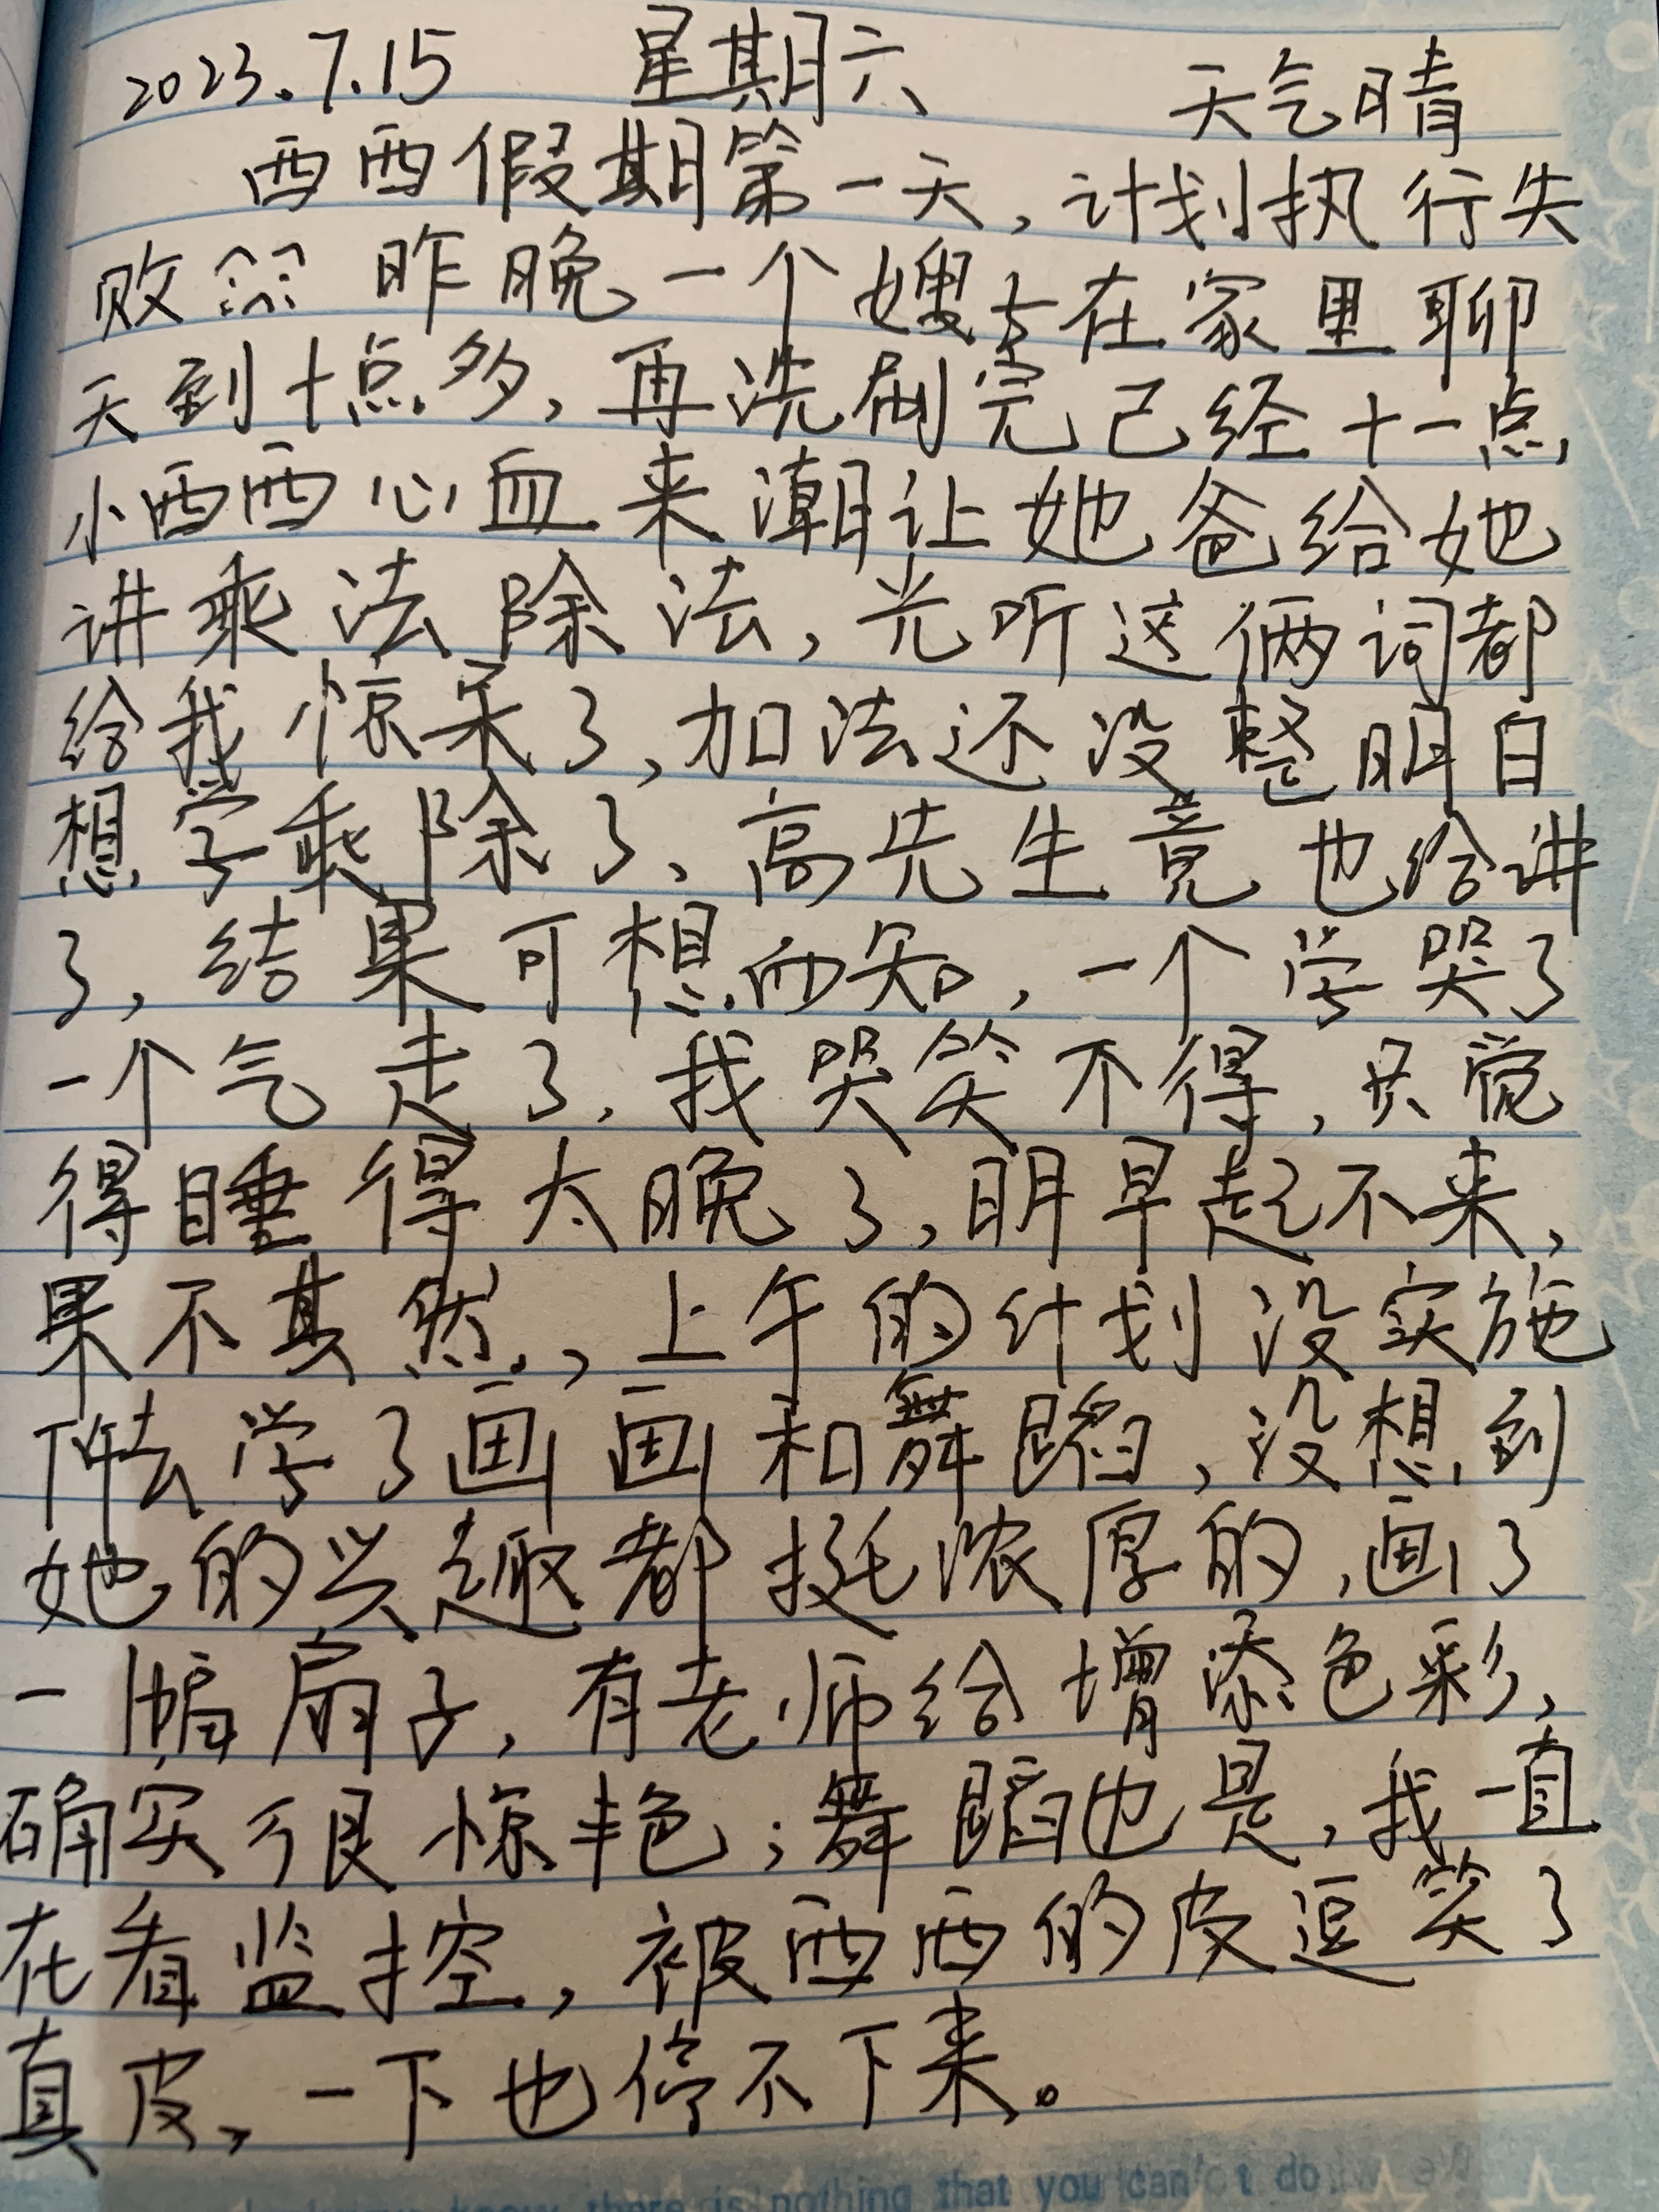 2023.7.15 星期六 天气晴
西西假期第一天,计划执行失
败 昨晚一个嫂子在家里聊
天到十点多,再洗刷完已经十一点
小西西心血来潮让她爸给她
讲乘法除法,光听这俩词都
给我惊呆了,加法还没整明白
想学乘除了、高先生竟也给讲
了,结果可想而知,一个学哭了
一个气走了,我哭笑不得,只觉
得睡得太晚了,明早起不来,
果不其然,上午的计划没实施
下午去学了画画和舞蹈,没想到
她的兴趣都挺浓厚的,画了
一幅扇子,有老师给增添色彩,
确实很惊艳;舞蹈也是,我一直
在看监控,被西西的皮逗笑了
真皮,一下也停不下来。
there is nothing that you can't do